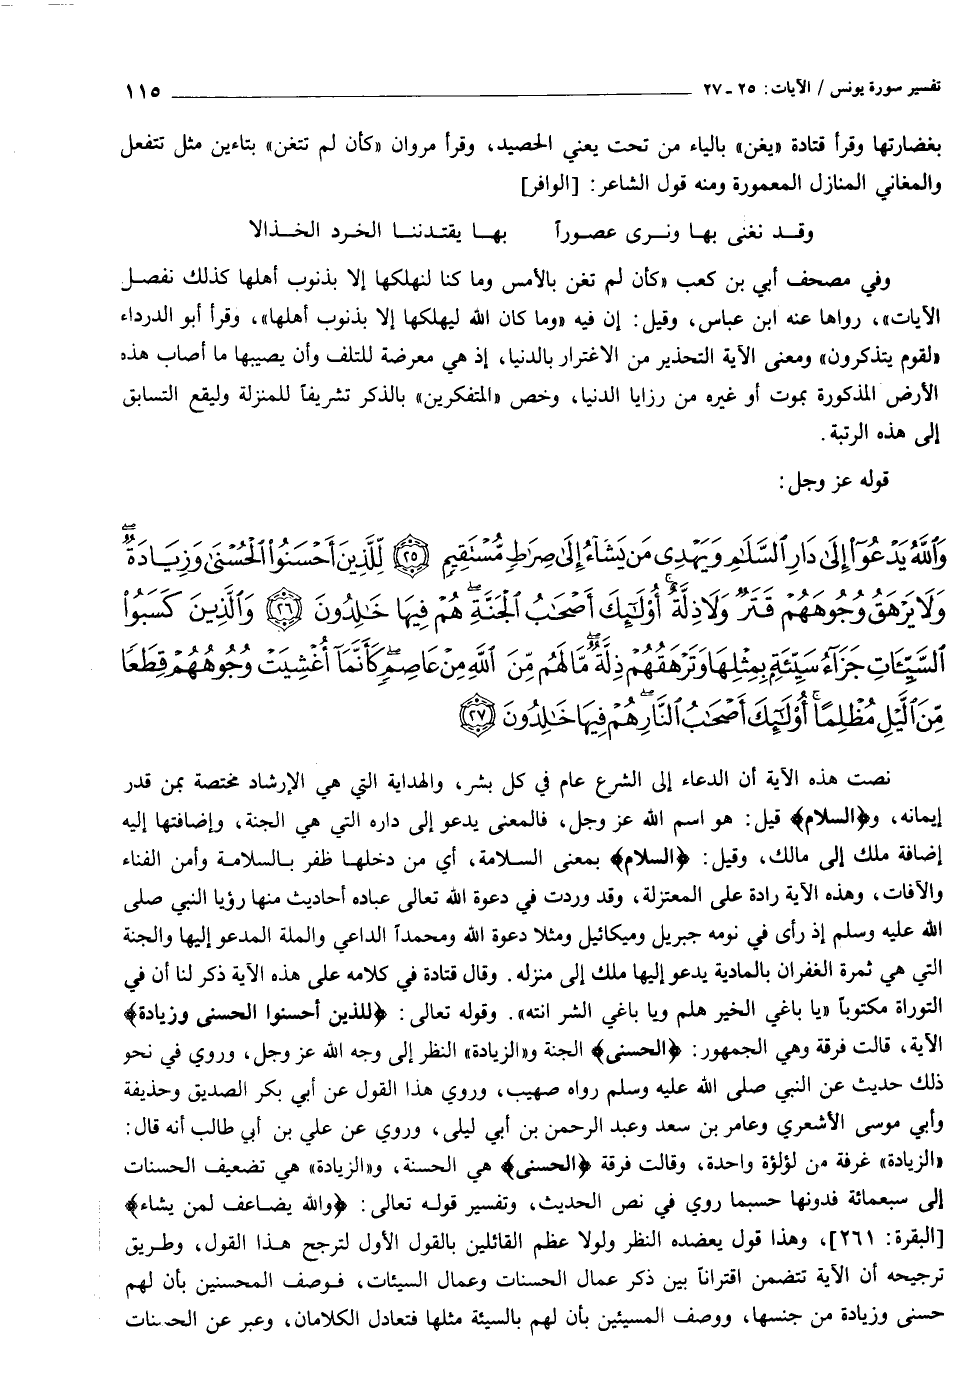 تفسير سورة يونس / الآيات: ٢٥ ـ ٢٧ ١١٥
بغضارتها وقرأ قتادة «يغن» بالياء من تحت يعني الحصيد، وقرأ مروان «كأن لم تتغن» بتاءين مثل تتفعل
والمغاني المنازل المعمورة ومنه قول الشاعر: [الوافر]
وقد نغنى بها ونرى عصوراً بها يقتدننا الخرد الخذالا
وفي مصحف أبي بن كعب «كأن لم تغن بالأمس وما كنا لنهلكها إلا بذنوب أهلها كذلك نفصل
الآيات»، رواها عنه ابن عباس، وقيل: إن فيه «وما كان الله ليهلكها إلا بذنوب أهلها»، وقرأ أبو الدرداء
«لقوم يتذكرون» ومعنى الآية التحذير من الاغترار بالدنيا، إذ هي معرضة للتلف وأن يصيبها ما أصاب هذه
الأرض المذكورة بموت أو غيره من رزايا الدنيا، وخص «المتفكرين» بالذكر تشريفاً للمنزلة وليقع التسابق
إلى هذه الرتبة.
قوله عز وجل:
وَٱللَّهُ يَدْعُوٓا۟ إِلَىٰ دَارِ ٱلسَّلَٰمِ وَيَهْدِى مَن يَشَآءُ إِلَىٰ صِرَٰطٍ مُّسْتَقِيمٍ ﴿٢٥﴾ لِّلَّذِينَ أَحْسَنُوا۟ ٱلْحُسْنَىٰ وَزِيَادَةٌۖ
وَلَا يَرْهَقُ وُجُوهَهُمْ قَتَرٌ وَلَا ذِلَّةٌۚ أُو۟لَٰٓئِكَ أَصْحَٰبُ ٱلْجَنَّةِۖ هُمْ فِيهَا خَٰلِدُونَ ﴿٢٦﴾ وَٱلَّذِينَ كَسَبُوا۟
ٱلسَّيِّـَٔاتِ جَزَآءُ سَيِّئَةٍۭ بِمِثْلِهَا وَتَرْهَقُهُمْ ذِلَّةٌۖ مَّا لَهُم مِّنَ ٱللَّهِ مِنْ عَاصِمٍۖ كَأَنَّمَآ أُغْشِيَتْ وُجُوهُهُمْ قِطَعًا
مِّنَ ٱلَّيْلِ مُظْلِمًاۚ أُو۟لَٰٓئِكَ أَصْحَٰبُ ٱلنَّارِۖ هُمْ فِيهَا خَٰلِدُونَ ﴿٢٧﴾
نصت هذه الآية أن الدعاء إلى الشرع عام في كل بشر، والهداية التي هي الإرشاد مختصة بمن قدر
إيمانه، و﴿السلام﴾ قيل: هو اسم الله عز وجل، فالمعنى يدعو إلى داره التي هي الجنة، وإضافتها إليه
إضافة ملك إلى مالك، وقيل: ﴿السلام﴾ بمعنى السلامة، أي من دخلها ظفر بالسلامة وأمن الفناء
والآفات، وهذه الآية رادة على المعتزلة، وقد وردت في دعوة الله تعالى عباده أحاديث منها رؤيا النبي صلى
الله عليه وسلم إذ رأى في نومه جبريل وميكائيل ومثلا دعوة الله ومحمداً الداعي والملة المدعو إليها والجنة
التي هي ثمرة الغفران بالمادبة يدعو إليها ملك إلى منزله. وقال قتادة في كلامه على هذه الآية ذكر لنا أن في
التوراة مكتوباً «يا باغي الخير هلم ويا باغي الشر انته». وقوله تعالى: ﴿للذين أحسنوا الحسنى وزيادة﴾
الآية، قالت فرقة وهي الجمهور: ﴿الحسنى﴾ الجنة و«الزيادة» النظر إلى وجه الله عز وجل، وروي في نحو
ذلك حديث عن النبي صلى الله عليه وسلم رواه صهيب، وروي هذا القول عن أبي بكر الصديق وحذيفة
وأبي موسى الأشعري وعامر بن سعد وعبد الرحمن بن أبي ليلى، وروي عن علي بن أبي طالب أنه قال:
«الزيادة» غرفة من لؤلؤة واحدة، وقالت فرقة ﴿الحسنى﴾ هي الحسنة، و«الزيادة» هي تضعيف الحسنات
إلى سبعمائة فدونها حسبما روي في نص الحديث، وتفسير قوله تعالى: ﴿والله يضاعف لمن يشاء﴾
[البقرة: ٢٦١]، وهذا قول يعضده النظر ولولا عظم القائلين بالقول الأول لترجح هذا القول، وطريق
ترجيحه أن الآية تتضمن اقتراناً بين ذكر عمال الحسنات وعمال السيئات، فوصف المحسنين بأن لهم
حسنى وزيادة من جنسها، ووصف المسيئين بأن لهم بالسيئة مثلها فتعادل الكلامان، وعبر عن الحسنات